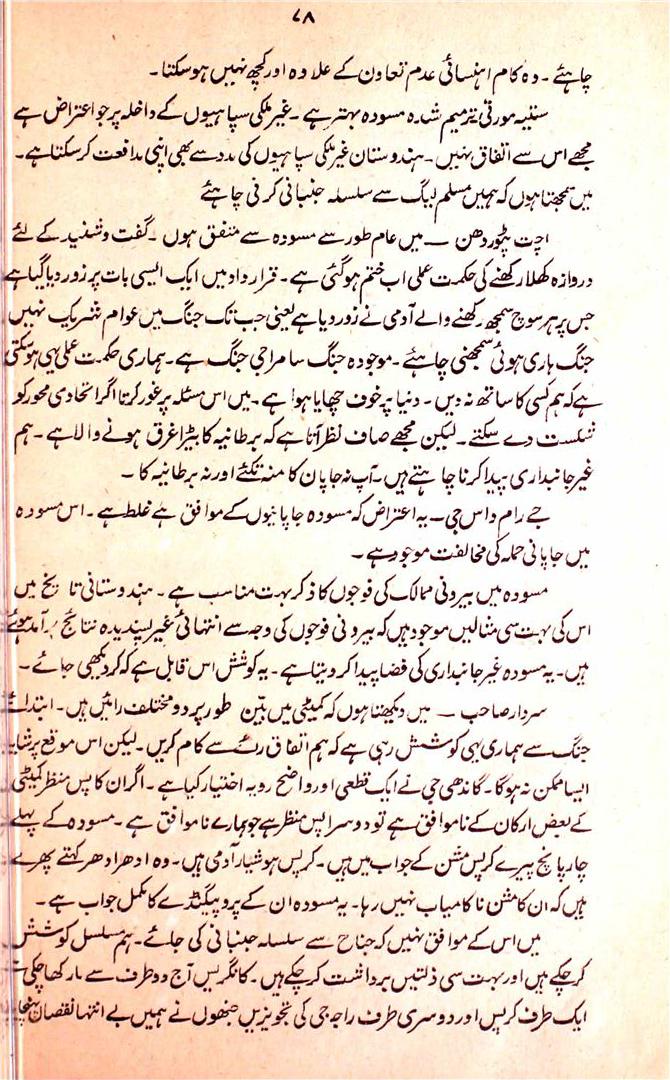 ۷۸
چاہئے ۔ وہ کام اہنسائی عدم تعاون کے علاوہ اور کچھ نہیں ہو سکتا ۔
ستیہ مورتی ، ترمیم شدہ مسودہ بہتر ہے ۔ غیر ملکی سپاہیوں کے داخلہ پر جو اعتراض ہے
مجھے اس سے اتفاق نہیں ۔ ہندوستان غیر ملکی سپاہیوں کی مدد سے بھی اپنی مدافعت کر سکتا ہے ۔
میں سمجھتا ہوں کہ ہمیں مسلم لیگ سے سلسلہ جنبانی کرنی چاہئے
اچت پٹوردھن ـــ میں عام طور سے مسودہ سے متفق ہوں ۔ گفت و شنید کے لئے
دروازہ کھلا رکھنے کی حکمت عملی اب ختم ہو گئی ہے ۔ قرارداد میں ایک ایسی بات پر زور دیا گیا ہے
جس پر ہر سوچ سمجھ رکھنے والے آدمی نے زور دیا ہے یعنی جب تک جنگ میں عوام شریک نہیں
جنگ ہاری ہوئی سمجھنی چاہئے ۔ موجودہ جنگ سامراجی جنگ ہے ۔ ہماری حکمت عملی یہی ہو سکتی
ہے کہ ہم کسی کا ساتھ نہ دیں ۔ دنیا پر خوف چھایا ہوا ہے ۔ میں اس مسئلہ پر غور کرتا اگر اتحادی محور کو
شکست دے سکتے ۔ لیکن مجھے صاف نظر آتا ہے کہ برطانیہ کا بیڑا غرق ہونے والا ہے ۔ ہم
غیر جانبداری پیدا کرنا چاہتے ہیں ۔ آپ نہ جاپان کا منہ تکئے اور نہ برطانیہ کا ۔
جے رام داس جی ـــ یہ اعتراض کہ مسودہ جاپانیوں کے موافق ہے غلط ہے ۔ اس مسودہ
میں جاپانی حملہ کی مخالفت موجود ہے ۔
مسودہ میں بیرونی ممالک کی فوجوں کا ذکر بہت مناسب ہے ۔ ہندوستانی تاریخ میں
اس کی بہت سی مثالیں موجود ہیں کہ بیرونی فوجوں کی وجہ سے انتہائی غیر پسندیدہ نتائج برآمد ہوئے
ہیں ۔ یہ مسودہ غیر جانبداری کی فضا پیدا کر دیتا ہے ۔ یہ کوشش اس قابل ہے کہ کر دیکھی جائے ۔
سردار صاحب ـــ میں دیکھتا ہوں کہ کمیٹی میں بیّن طور پر دو مختلف رائیں ہیں ۔ ابتدائے
جنگ سے ہماری یہی کوشش رہی ہے کہ ہم اتفاق رائے سے کام کریں ۔ لیکن اس موقع پر شاید
ایسا ممکن نہ ہوگا ۔ گاندھی جی نے ایک قطعی اور واضح رویہ اختیار کیا ہے ۔ اگر ان کا پس منظر کمیٹی
کے بعض ارکان کے ناموافق ہے تو دوسرا پس منظر ہے جو ہمارے ناموافق ہے ۔ مسودہ کے پہلے
چار پانچ پیرے کرپس مشن کے جواب میں ہیں ۔ کرپس ہوشیار آدمی ہیں ۔ وہ ادھر ادھر کہتے پھرے
ہیں کہ ان کا مشن ناکامیاب نہیں رہا ۔ یہ مسودہ ان کے پروپیگنڈے کا مکمل جواب ہے ۔
میں اس کے موافق نہیں کہ جناح سے سلسلہ جنبانی کی جائے ۔ ہم مسلسل کوشش
کر چکے ہیں اور بہت سی ذلتیں برداشت کر چکے ہیں ۔ کانگریس آج دو طرف سے مار کھا چکی
ایک طرف کرپس اور دوسری طرف راجہ جی کی تجویزیں جنھوں نے ہمیں بے انتہا نقصان پہنچایا